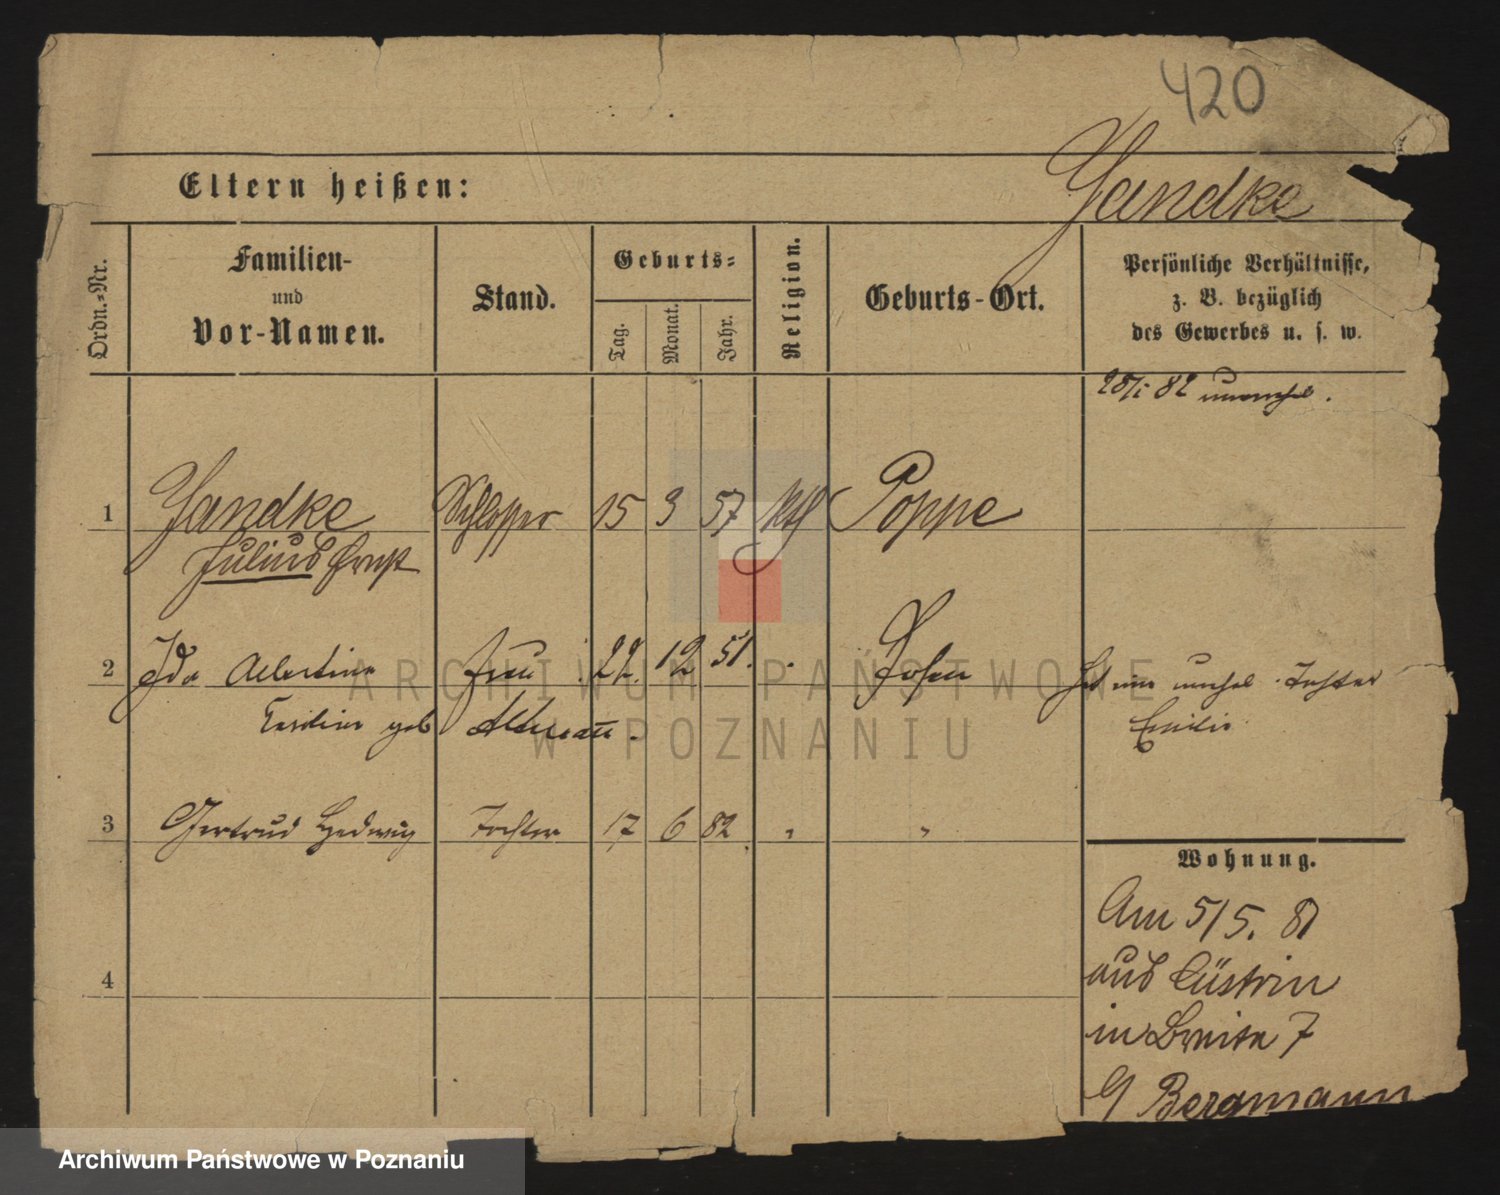 420
Eltern heißen:
Jandke
Ordn.-Nr.
Familien-
und
Vor-Namen.
Stand.
Geburts-
Tag.
Monat.
Jahr.
Religion.
Geburts-Ort.
Persönliche Verhältnisse,
z. B. bezüglich
des Gewerbes u. s. w.
82
1 Jandke Schlosser 15 3 57 kth Poppe
Julius Ernst
2 Ida Albertine Frau 22. 12 51. Posen Hat eine unehel. Tochter
geb Altmann. Emilie
3 Gertrud Hedwig Tochter 17 6 82 " "
Wohnung.
Am 5/5. 81
aus Cüstrin
in Breite 7
4
b/ Bergmann
ARCHIWUM PAŃSTWOWE
W POZNANIU
Archiwum Państwowe w Poznaniu